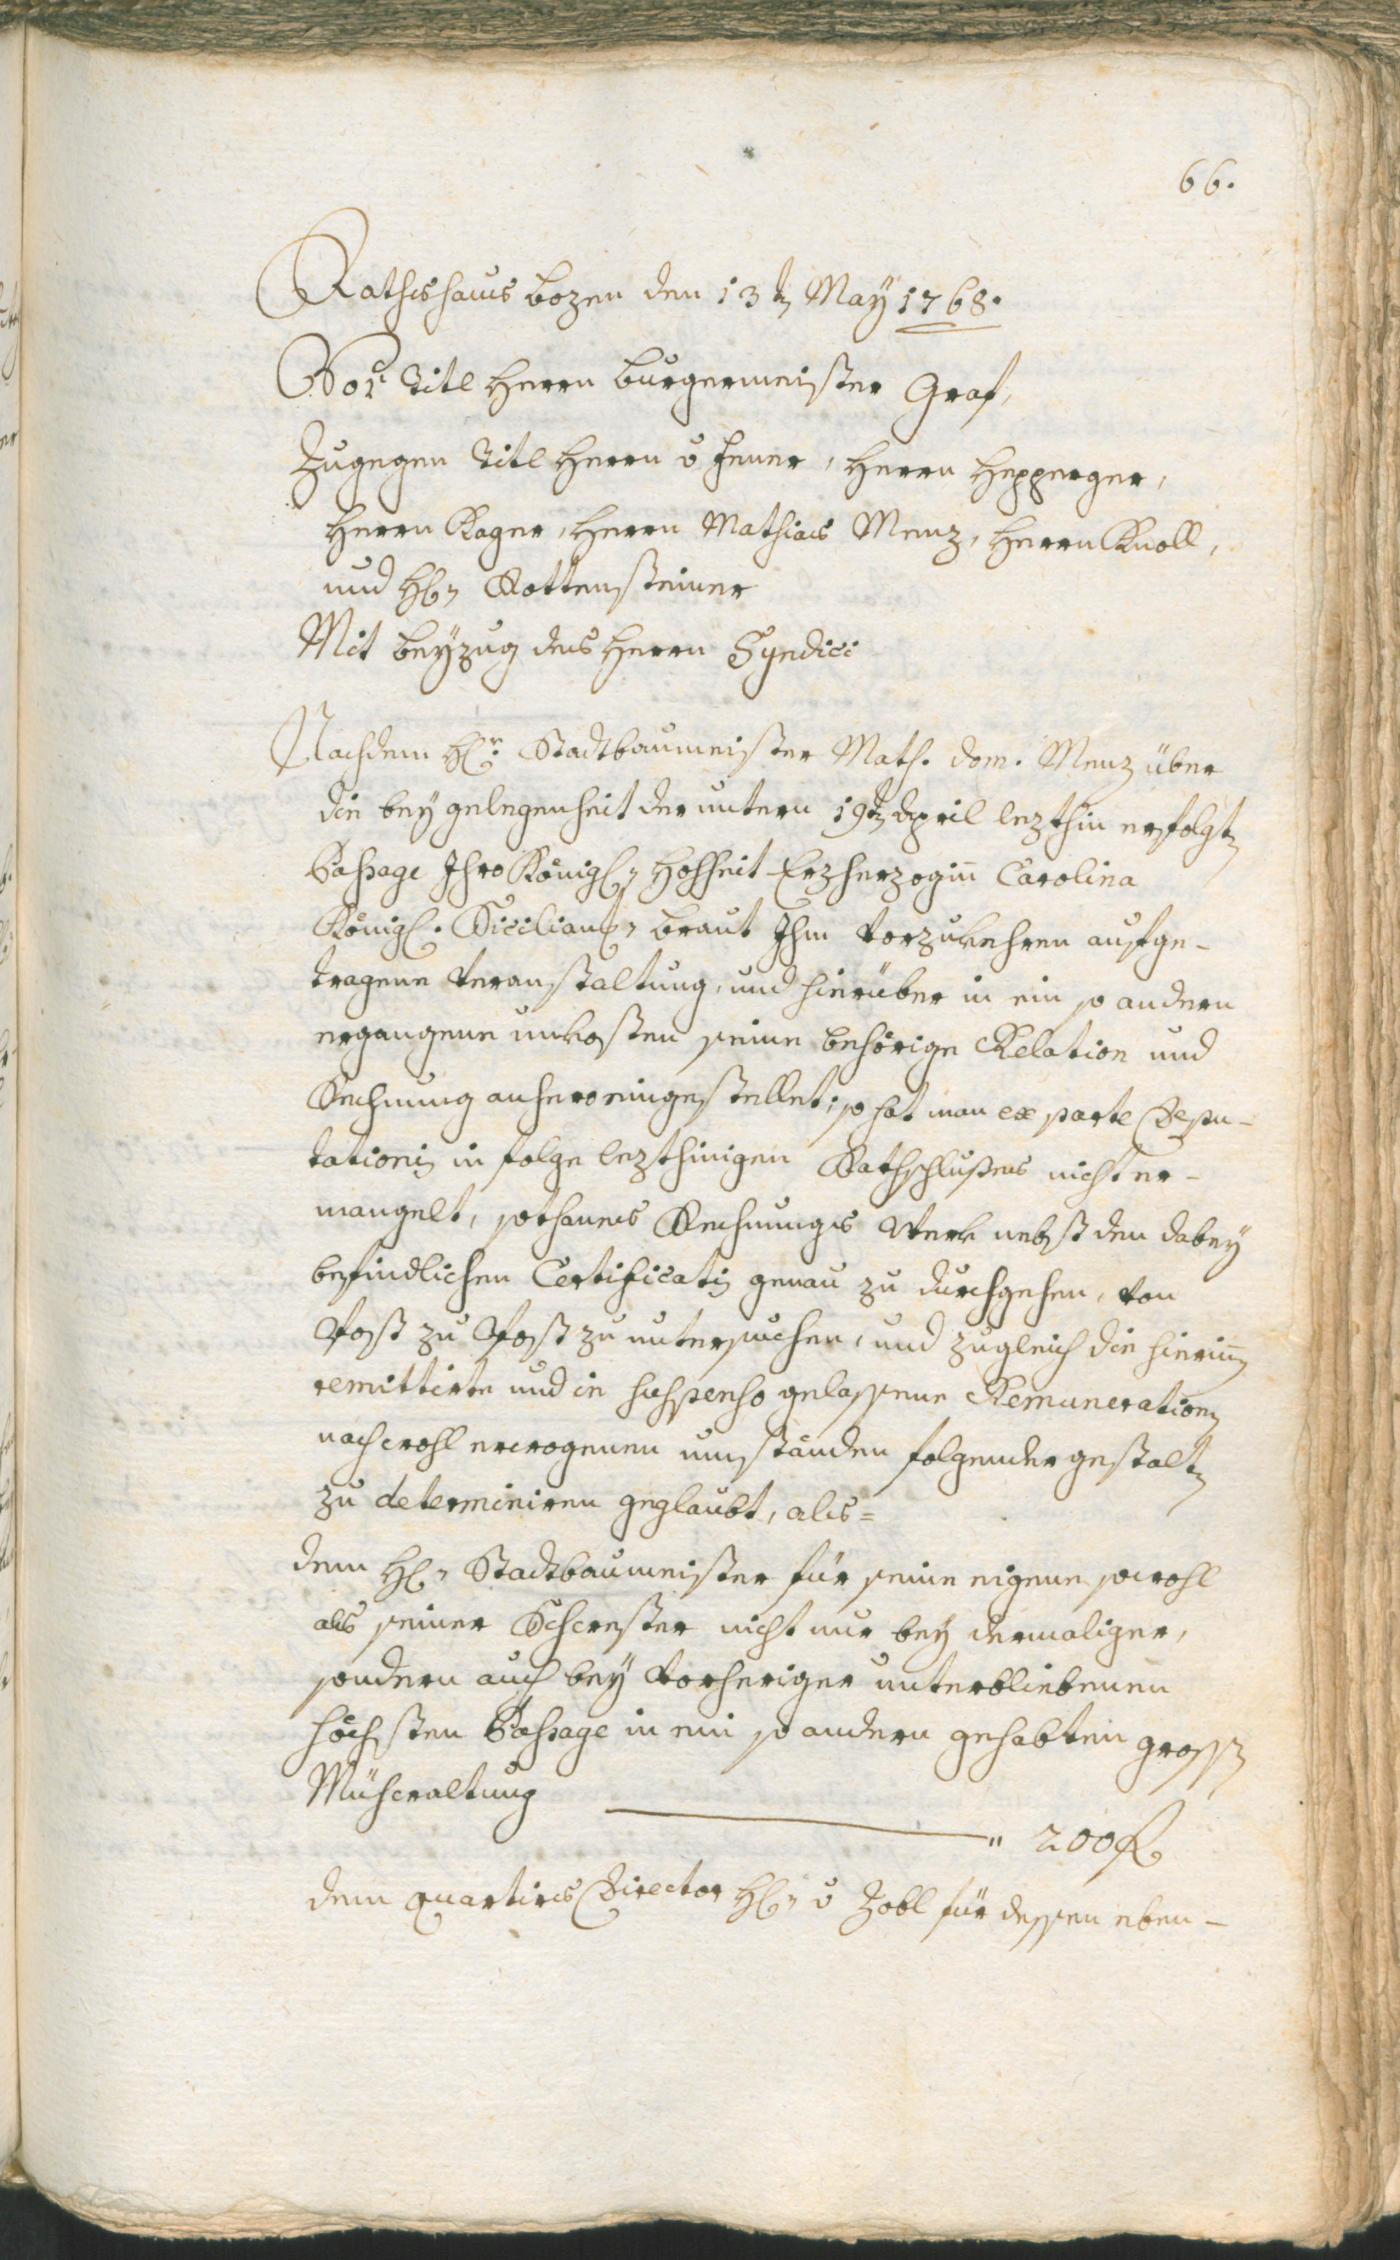 66.
Rathshaus Bozen den 13ten May 1768.
Vor Titl Herrn Burgermeister Graf,
Zugegen Titl Herrn v Jener, Herrn Hepperger,
Herrn Kager, Herrn Mathias Menz, Herrn Knoll,
und H: Rottensteiner
Mit beyzug des Herrn Syndici
Nachdem Hr: Stadtbaumeister Math. Dom. Menz über
die bey gelegenheit der untern 19ten April lezthin erfolgten
Passage Ihro Königl: Hohheit Erzherzoginn Carolina
Königl. Sicilian: Braut Ihm vorzukehren aufge-
tragene Veranstaltung, und hierüber in ein so andern
ergangene unkosten seine behörige Relation und
Rechnung anhero eingestellet; so hat man ex parte Depu-
tationis in folge lezthinigen Rathschlußes nicht er-
mangelt, sothanes Rechnungs Werk nebst den dabey
befindlichen Certificatis genau zu durchgehen, von
Post zu Post zu untersuchen, und zugleich die hierinen
remittirte und in suspenso gelassene Remunerationen
nach wohl erwogenen umständen folgender gestalten
zu determiniren geglaubt, als=
dem H: Stadtbaumeister für seine eigene sowohl
als seiner Schwester nicht nur bey dermaliger,
sondern auch bey vorheriger unterbliebenen
höchsten Passage in ein so andern gehabten grossen
Mühwaltung
" 200 f
dem quartirs Director H: v Zobl für dessen eben-